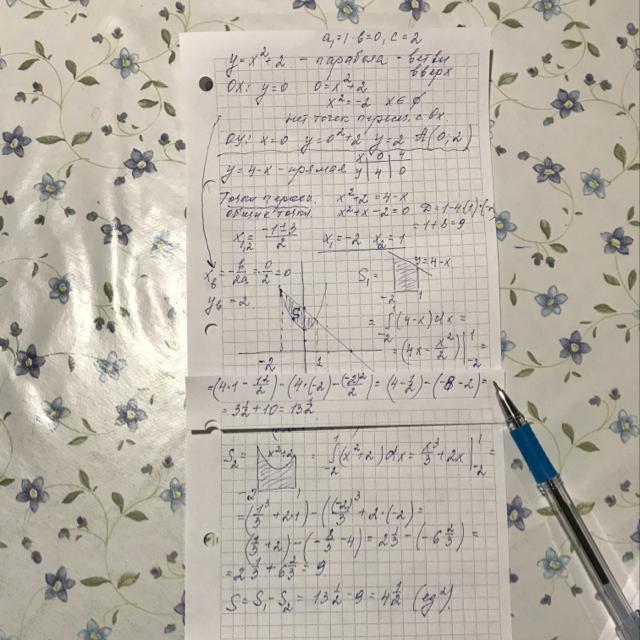 a=1 b=0, c=2
y=x²+2 - парабола - ветви вверх
OX: y=0 0=x²+2
x²=-2 x∈∅
нет точек перес. с ох.
OY: x=0 y=0²+2 y=2 A(0,2)
y=4-x - прямая
x 0 4
y 4 0
Точки перес. x²+2=4-x
общие точки x²+x-2=0 D=1-4·1·(-2)
=1+8=9
x₁,₂=(-1±3)/2 x₁=-2 x₂=1
x₆=-b/2a=0/2=0
y₆=2
S
-2 1
S₁= y=4-x
-2 1
=∫₋₂¹(4-x)dx=
=(4x-x²/2)|₋₂¹=
=(4·1-1²/2)-(4·(-2)-(-2)²/2)=(4-1/2)-(-8-2)=
=3 1/2+10=13 1/2
S₂= x²+2 =∫₋₂¹(x²+2)dx=x³/3+2x|₋₂¹=
-2 1
=(1³/3+2·1)-((-2)³/3+2·(-2)=
(1/3+2)-(-8/3-4)=2 1/3-(-6 2/3)=
=2 1/3+6 2/3=9
S=S₁-S₂=13 1/2-9=4 1/2 (ед²)